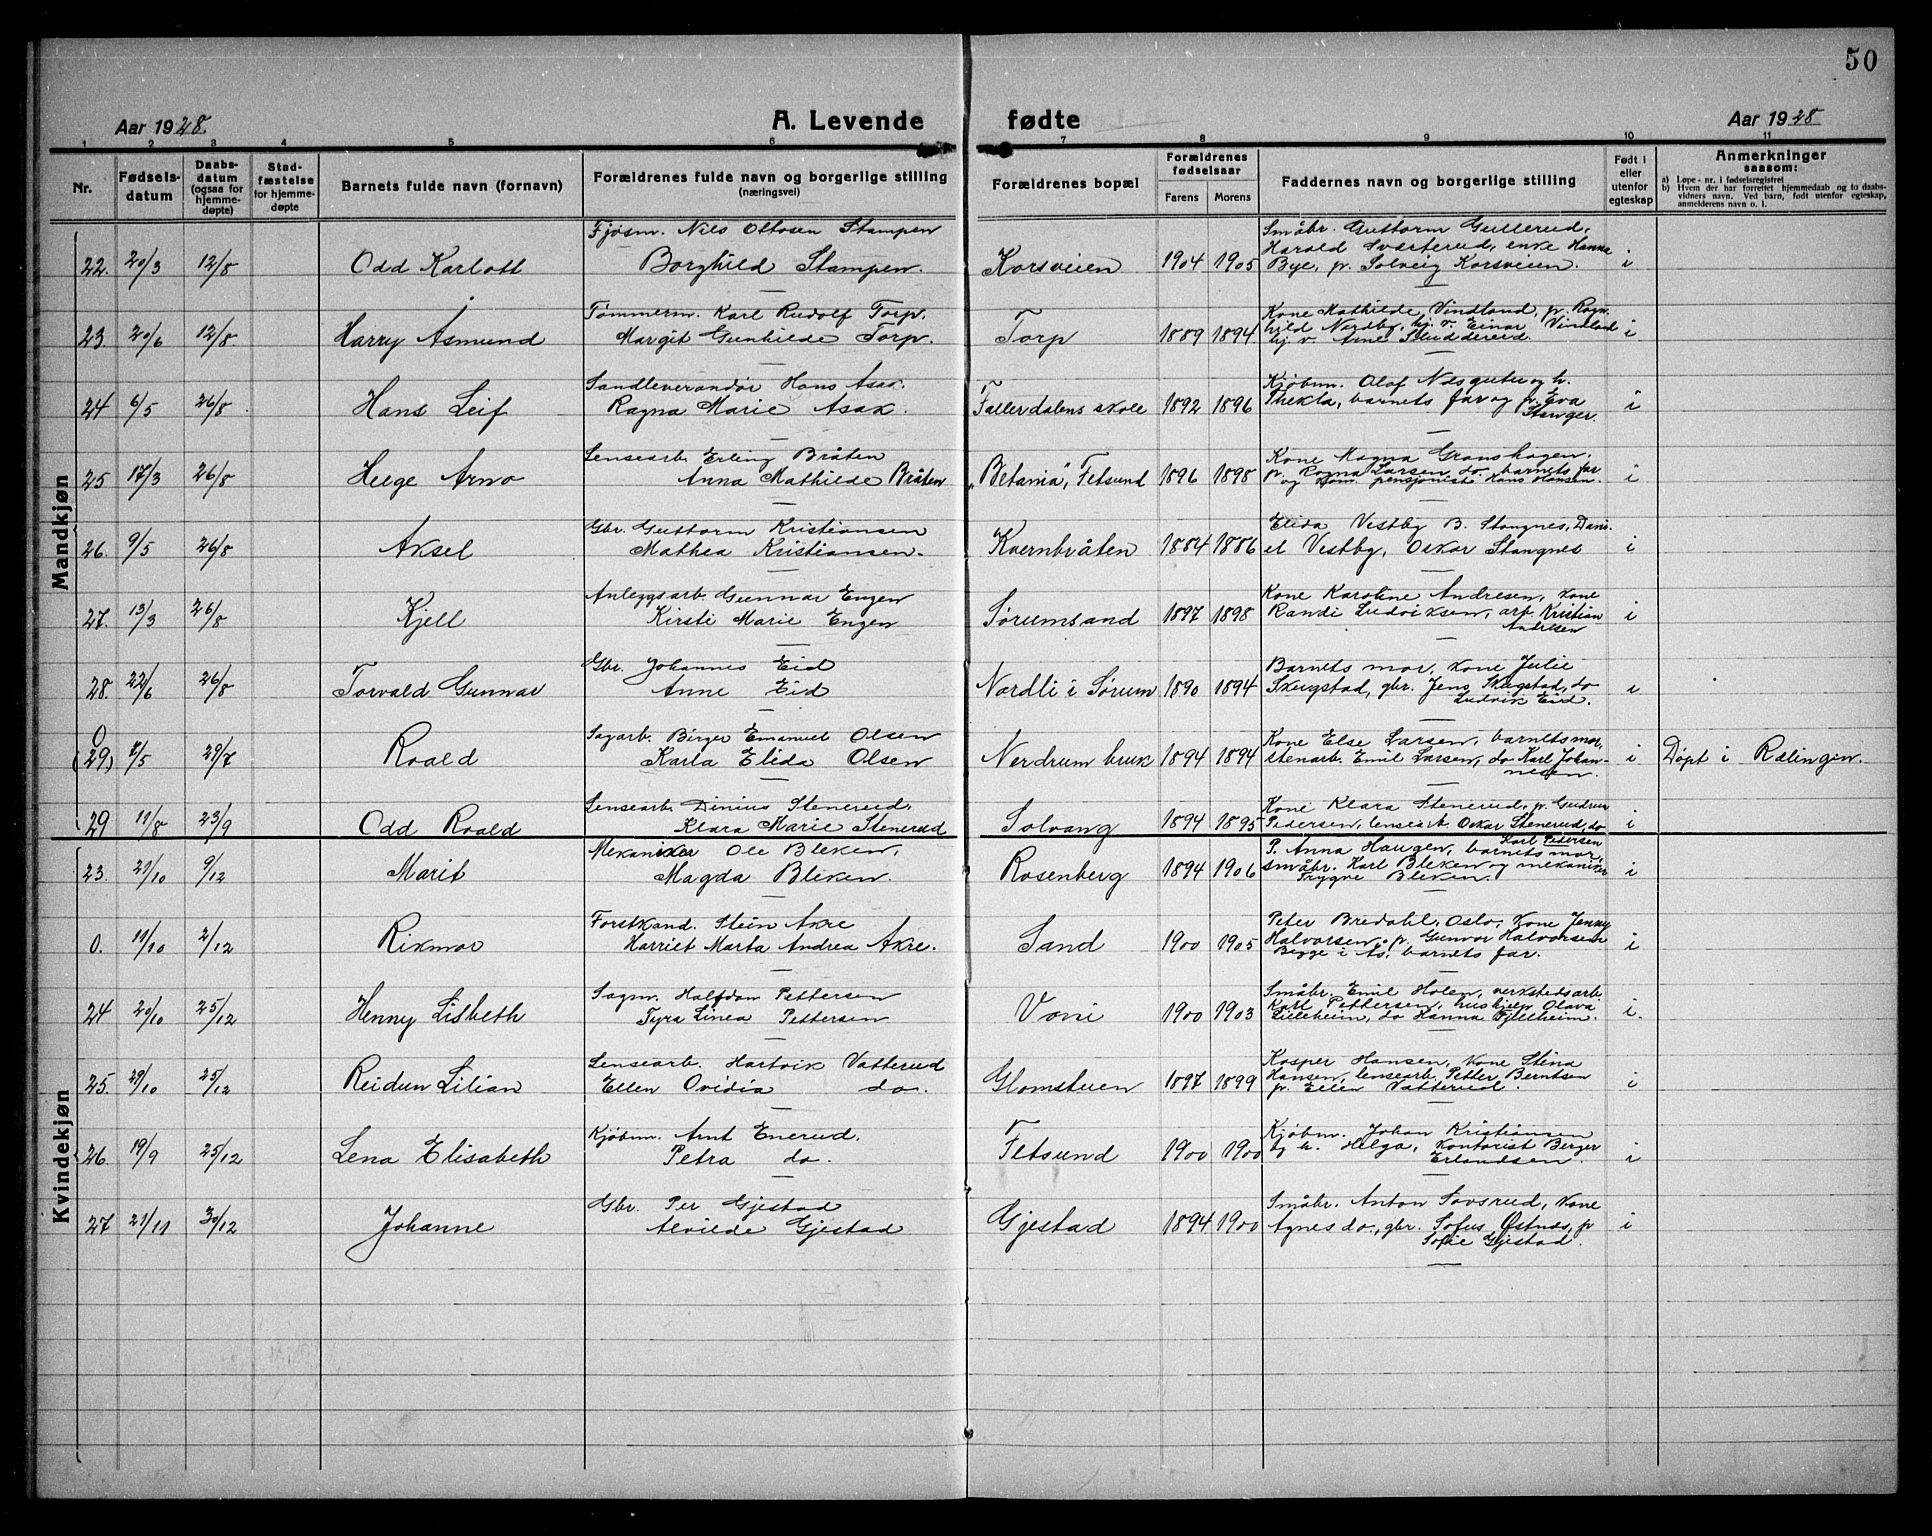 50
Aar 1928. A. Levende fødte Aar 1928
1 2 3 4 5 6 7 8 9 10 11
Nr. Fødsels-datum Daabs-datum (ogsaa for hjemme-døpte) Stad-fæstelse for hjemme-døpte Barnets fulde navn (fornavn) Forældrenes fulde navn og borgerlige stilling (næringsvei) Forældrenes bopæl Forældrenes fødselsaar Farens Morens Faddernes navn og borgerlige stilling Født i eller utenfor egteskap Anmerkninger saasom:
a) Løpe-nr. i fødselsregistret
b) Hvem der har forrettet hjemmedaab og to daabs-
vidners navn. Ved barn, født utenfor egteskap,
anmelderens navn o. l.
Mandkjøn
Fjøsm. Nils Ottosen Stampen Småbr. Guttorm Gullerud,
Harald Sværterud, enke Hanna
22. 20/3 12/8 Odd Karlott Borghild Stampen. Korsveien 1904 1905 Bye, p. Solveig Korsveien. i
Tømmerm. Karl Rudolf Torp. Kone Mathilde Vindland, p. Ragn-
23 20/6 12/8 Harry Asmund Margit Gunhilde Torp. Torp 1889 1894 hild Nordby, hj. v. Einar Vindland i
hj v. Arne Sluddereud.
Sandleverandør Hans Asak. Kjøbm. Olaf Nesgutu og h.
24 6/5 26/8 Hans Leif Ragna Marie Asak. Fallerdalens skole 1892 1896 Thekla, barnets far og p. Eva i
Stanger.
Lensearb. Erling Bråten Kone Magna Granshagen.
25 17/3 26/8 Helge Arno Anna Mathilde Bråten "Betania", Fetsund 1896 1898 p. Ragna Larsen, do, barnets far i
og pensjonist Hans Hansen.
Gbr. Guttorm Kristiansen Elida Vestby B. Stangnes, Dani-
26. 9/5 26/8 Aksel Mathea Kristiansen. Kvernbråten 1884 1886 el Vestby, Oskar Stangnes i
Anleggsarb. Gunnar Engen Kone Karoline Andresen, kone
27. 13/3 26/8 Kjell Kirsti Marie Engen Sørumsand 1897 1898 Randi Ludviksen, arb Kristian i
Andresen
Gbr. Johannes Eid Barnets mor, kone Julie
28. 22/6 26/8 Torvald Gunnar Anne Eid Nordli i Sørum 1890 1894 Skugstad, gbr. Jens Skugstad, do i
Ludvik Eid.
0 Sagarb. Birger Emanuel Olsen Kone Else Larsen, barnets mor,
(29) 7/5 29/7 Roald Karla Elida Olsen Nerdrum bruk 1894 1894 stenarb. Emil Larsen, do Karl Johan- i Døpt i Rælingen.
nesen.
Lensearb. Dinius Stenerud, Kone Klara Stenerud, p. Gudrun
29 11/8 23/9 Odd Roald Klara Marie Stenerud Solvang 1894 1895 Pedersen, lensearb. Oskar Stenerud, do i
Karl Pedersen
Kvindekjøn
Mekaniker Ole Bleken, P. Anna Haugen, barnets mor,
23. 21/10 9/12 Marit Magda Bleken. Rosenberg 1894 1906 småbr. Karl Bleken og mekaniker i
Trygve Bleken.
Forstkand. Stein Akre Peter Bredahl, Oslo, kone Jenny
0. 11/10 2/12 Rikmor Harriet Marta Andrea Akre. Sand 1900 1905 Halvorsen, p. Gunvor Halvorsen i
Begge i Ås, barnets far.
Sagm. Halfdan Pettersen Småbr. Emil Holen, verkstedsarb
24 20/10 25/12 Henny Lisbeth Tyra Linea Pettersen Voni 1900 1903 Karl Pettersen, hushjelp Olava i.
Lilleheim, do Hanna Fjellheim.
Lensearb. Hartvik Vatterud Kasper Hansen, kone Stina
25. 29/10 25/12 Reidun Lilian Ellen Ovidia do. Glomstuen 1897 1899 Hansen, lensearb. Petter Berntsen i
p. Ellen Vatterud.
Kjøbm. Arnt Enerud. Kjøbm. Johan Kristiansen
26. 19/9 25/12 Lena Elisabeth Petra do. Fetsund 1900 1900 og h. Helga, kontorist Berger i
Erlandsen.
Gbr. Per Gjestad Småbr. Anton Sovsrud, kone
27 21/11 30/12 Johanne Alvilde Gjestad Gjestad 1894 1900 Agnes do., gbr. Sofus Østnæs, p i
Sofie Gjestad.